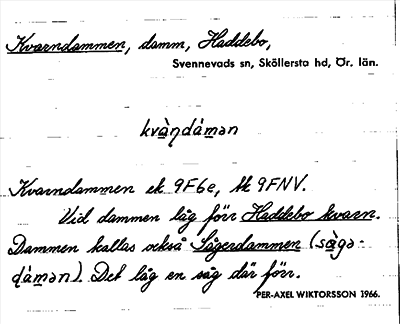 Kvarndammen, damm, Haddebo,
Svennevads sn, Sköllersta hd, Ör. län.
kvàṇdȧmən
Kvarndammen ek 9F6e, hk 9FNV.
Vid dammen låg förr Haddebo kvarn.
Dammen kallas också Sågerdammen (såge-
ḍȧmən). Det låg en såg där förr.
PER-AXEL WIKTORSSON 1966.